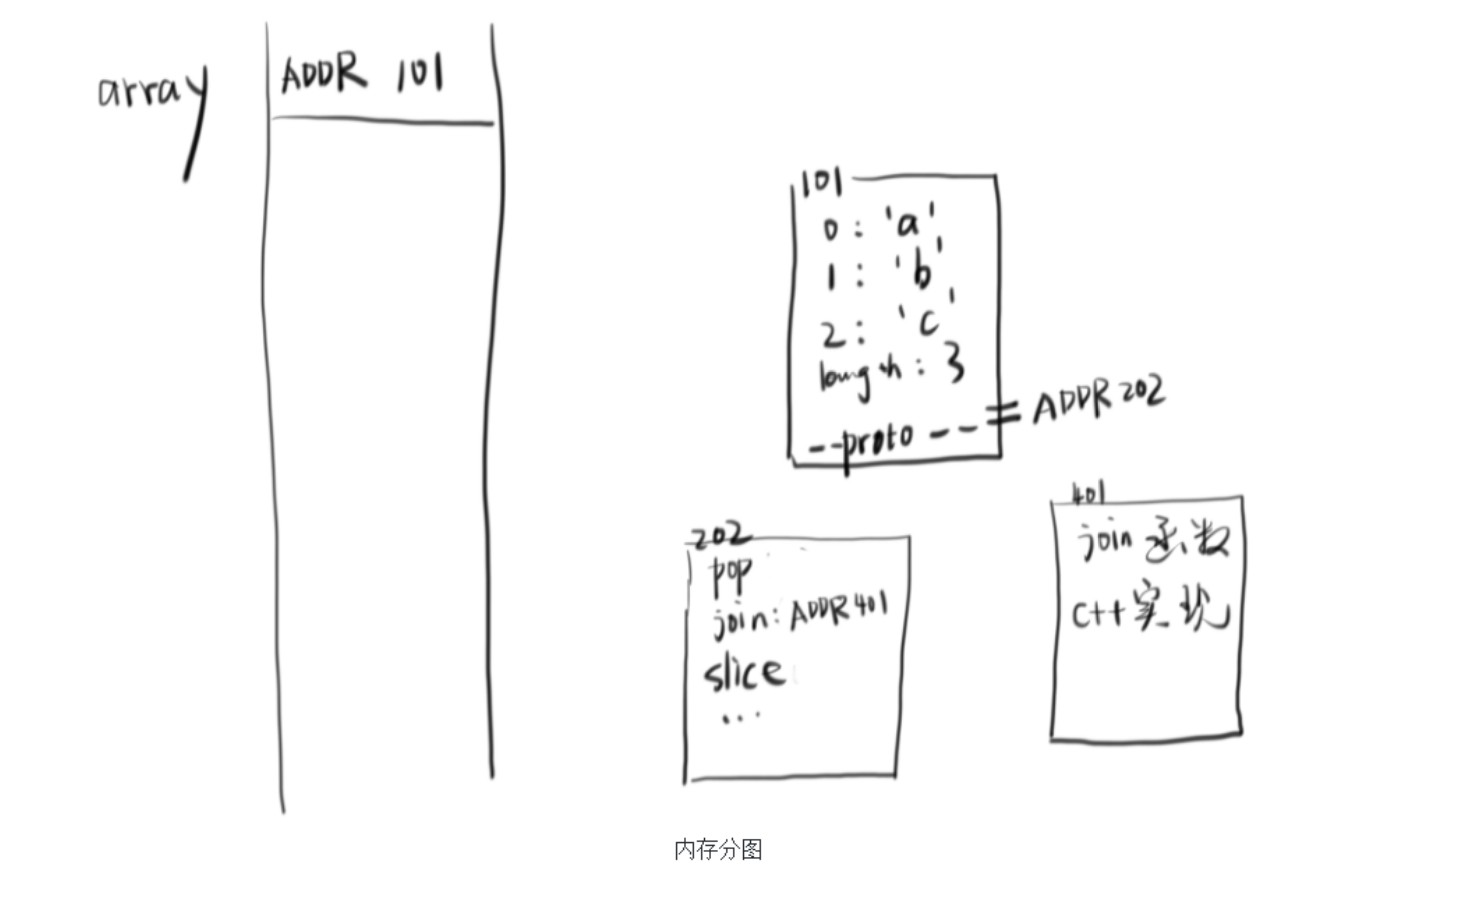 array
ADDR 101
101
0 : 'a'
1 : 'b'
2 : 'c'
length : 3
--proto-- = ADDR 202
202
pop
join: ADDR 401
slice
...
401
join 函数
c++ 实现
内存分图